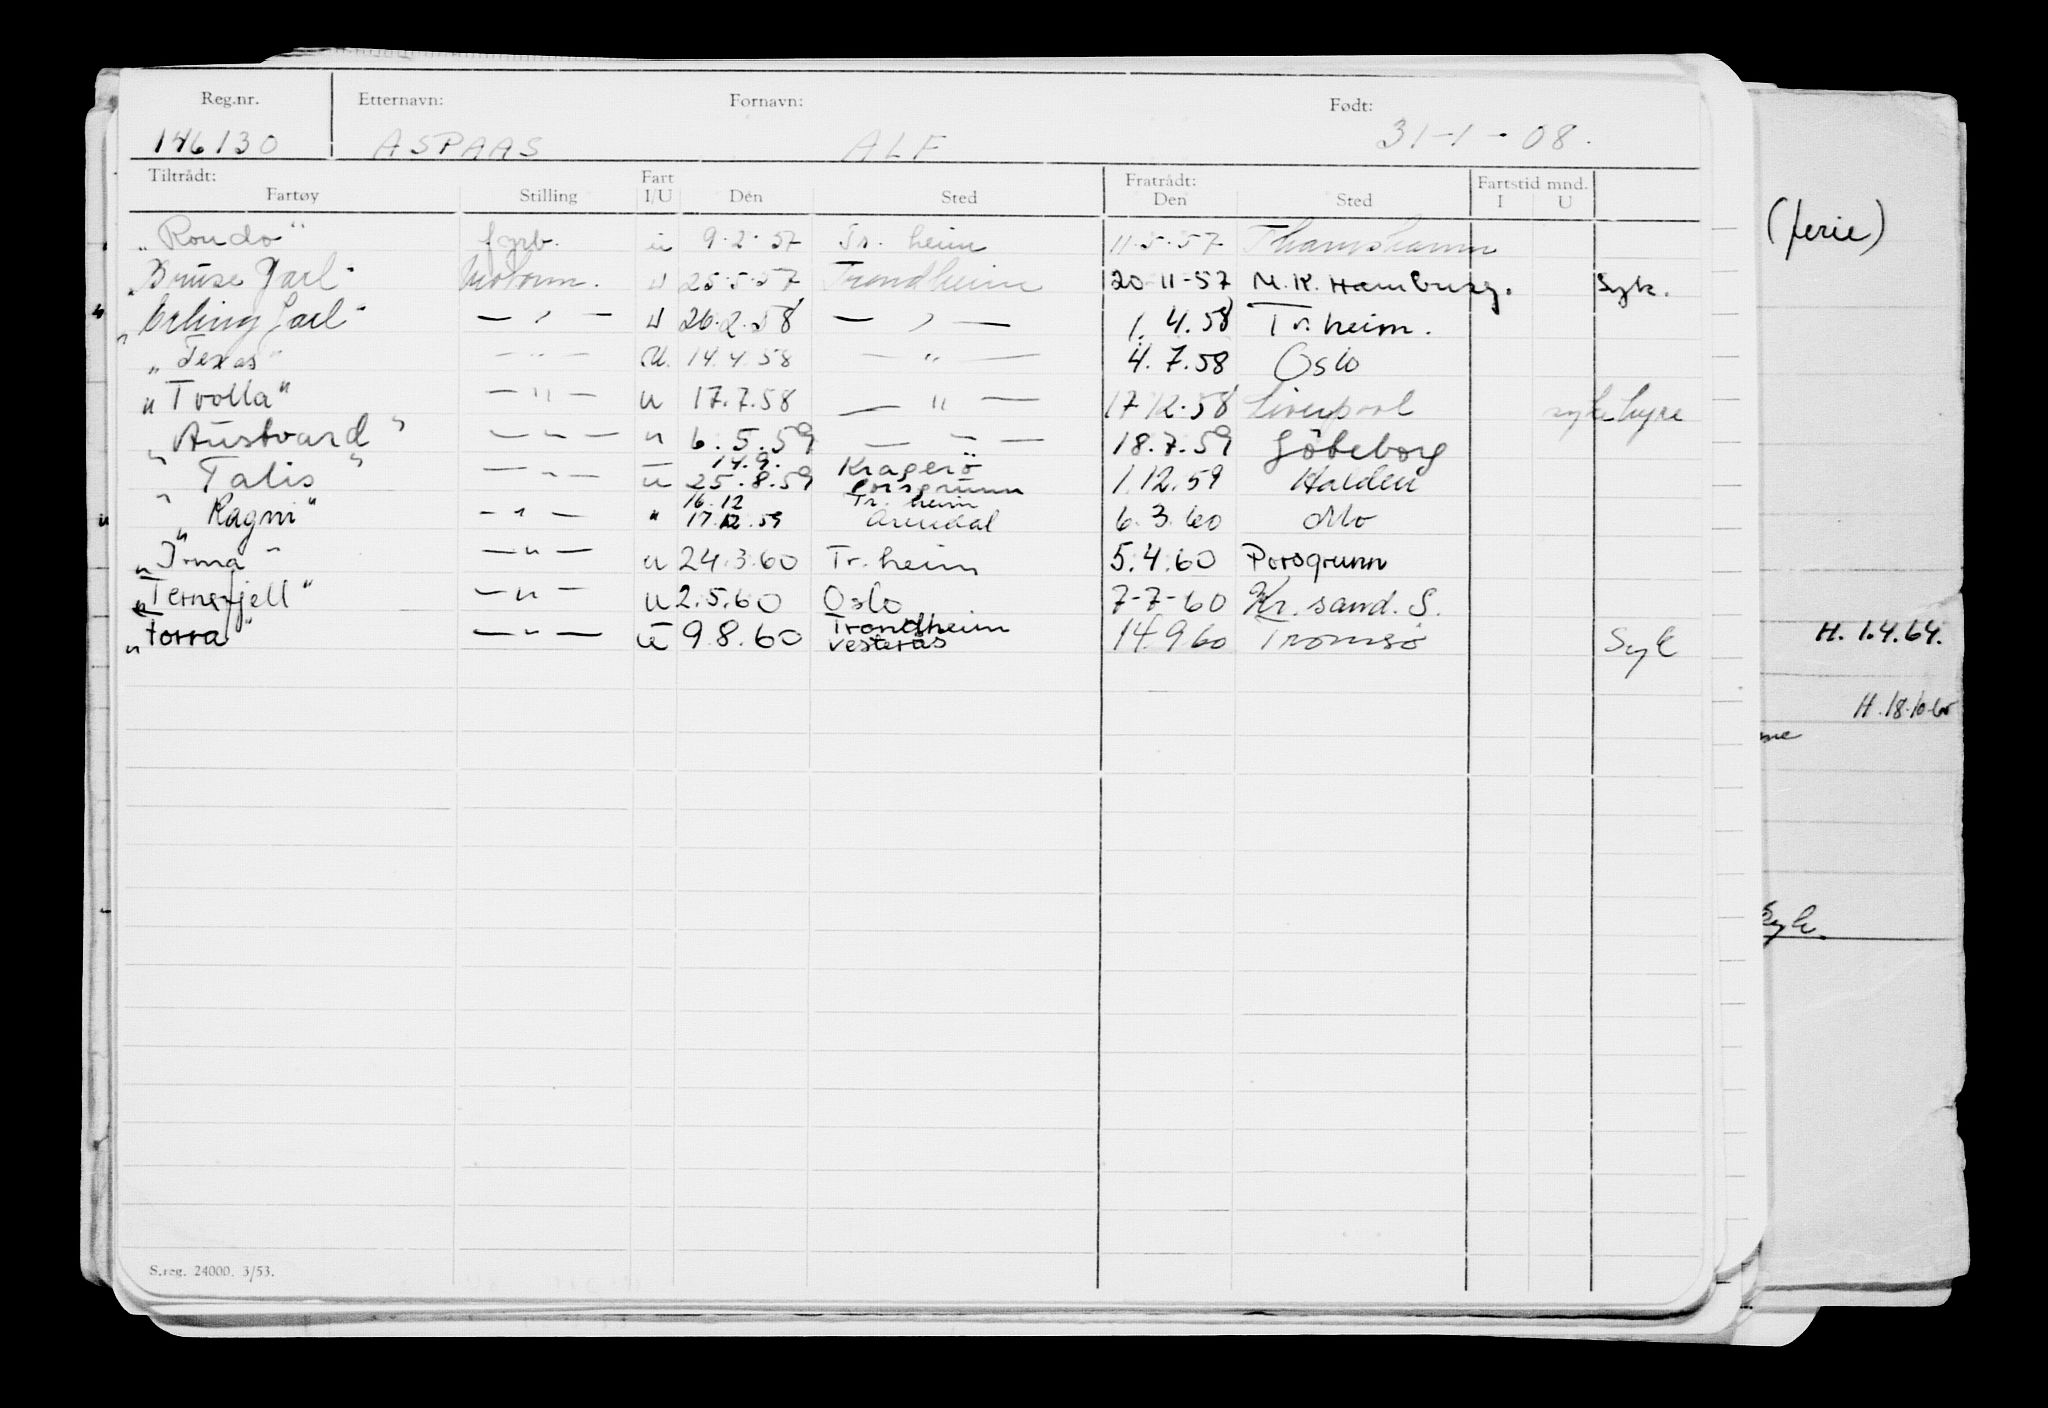 Reg.nr. Etternavn: Fornavn: Født:
146130 ASPAAS ALF 31-1-08.
Tiltrådt: Fart Fratrådt: Fartstid mnd.
Fartøy Stilling I/U Den Sted Den Sted I U
"Rondo" fyrb. u 9.2.57 Tr. heim 11.5.57 Thamshamn
"Bruse Jarl" Motorm. u 25.5.57 Trondheim 20-11-57 M.K. Hamburg. Syk.
"Erling Jarl" — " — u 26.2.58 — " — 1.4.58 Tr. heim.
"Texas" — " — u. 14.4.58 — " — 4.7.58 Oslo
"Tvolla" — " — u 17.7.58 — " — 17.12.58 Liverpool sykehyre
"Austvard" — " — " 6.5.59 — " — 18.7.59 Göteborg
14.9. Kragerö
"Talis" — " — u 25.8.59 Porsgrunn 1.12.59 Halden
16.12 Tr. heim
"Ragni" — " — " 17.12.59 Arendal 6.3.60 Oslo
"Irma" — " — u 24.3.60 Tr. heim 5.4.60 Porsgrunn
"Ternefjell" — " — u 2.5.60 Oslo 7-7-60 Kr. sand. S.
"Torra" — " — u 9.8.60 Trondheim 14.9.60 Tromsö Syk
Vesterås
S.reg. 24000. 3/53.
(ferie)
H. 1.4.64.
H. 18.10.65
Syk.